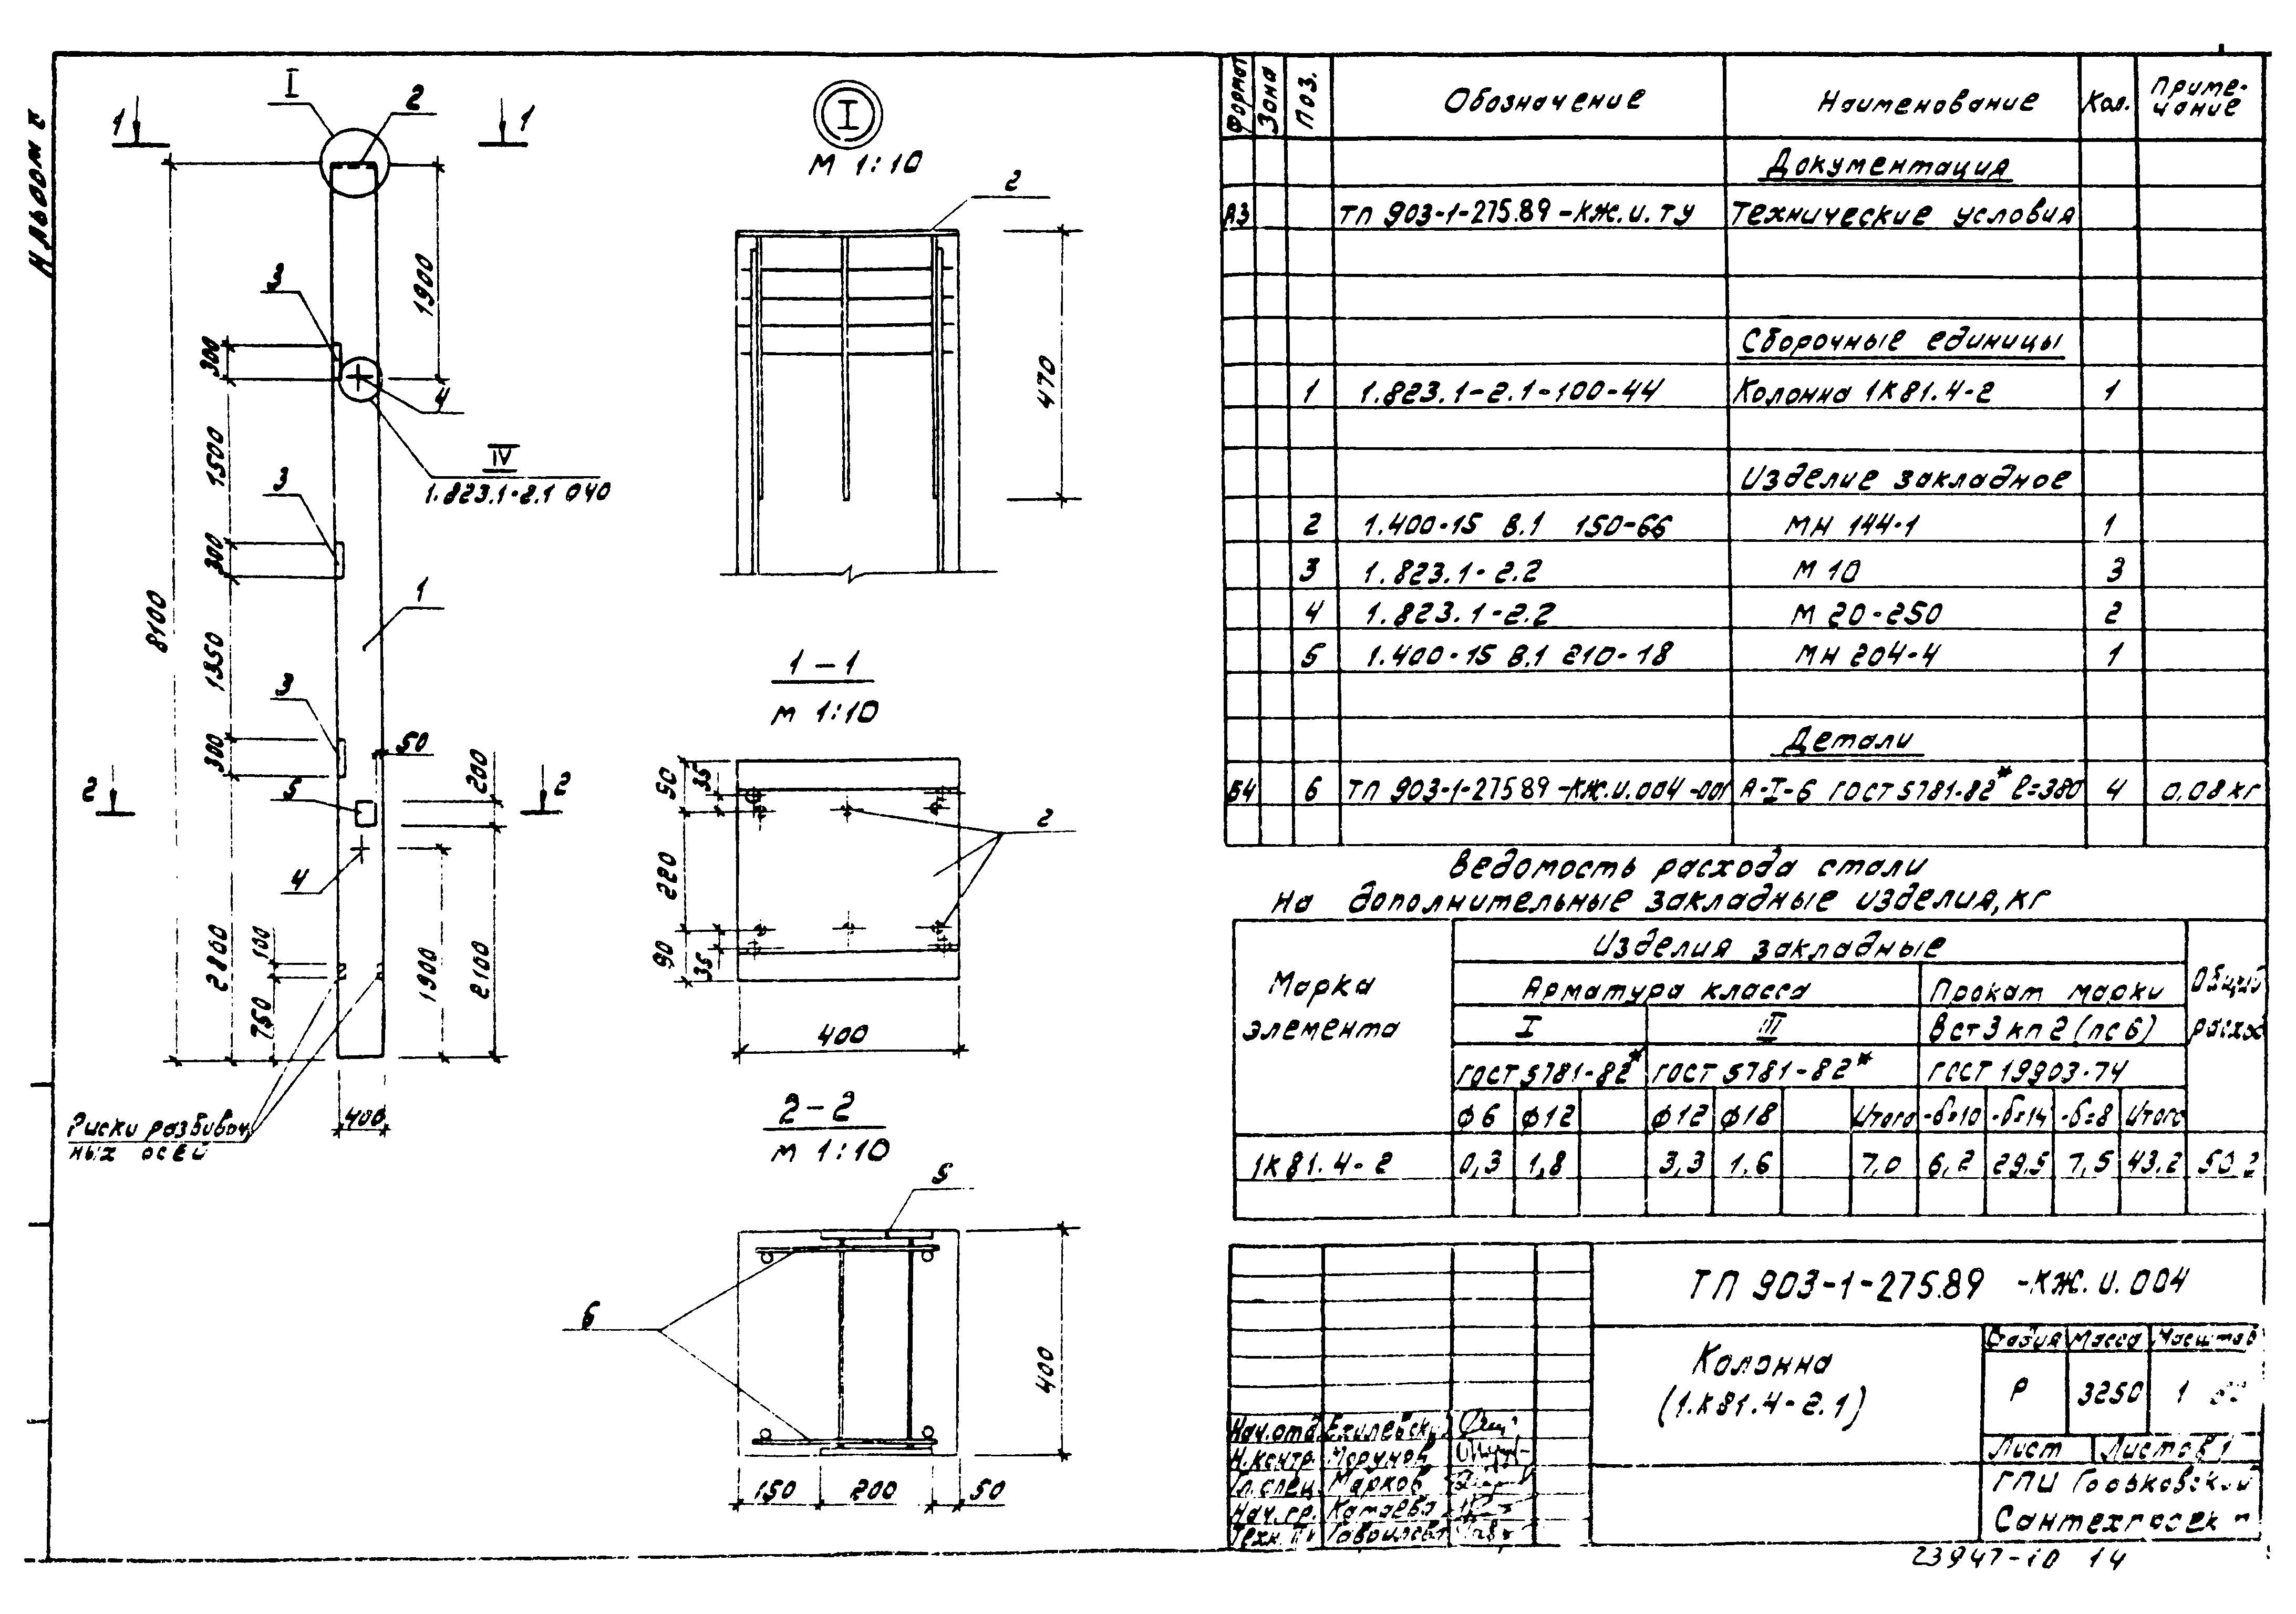 Альбом
I
2
1
1
3
300
1900
4
IV
1.823.1-2.1 040
1500
3
300
8100
1
1350
3
300
50
200
2
5
2
4
2800
100
750
1900
2100
Риски разбивоч
ных осей
400
I
М 1:10
2
470
1-1
М 1:10
90
35
220
2
90
35
400
2-2
М 1:10
5
6
400
150 200 50
Формат Зона Поз. Обозначение Наименование Кол. Приме-
чание
Документация
А3 ТП 903-1-275.89-КЖ.И.ТУ Технические условия
Сборочные единицы
1 1.823.1-2.1-100-44 Колонна 1К81.4-2 1
Изделие закладное
2 1.400-15 В.1 150-66 МН 144-1 1
3 1.823.1-2.2 М 10 3
4 1.823.1-2.2 М 20-250 2
5 1.400-15 В.1 210-18 МН 204-4 1
Детали
Б4 6 ТП 903-1-275.89-КЖ.И.004-001 А-I-6 ГОСТ 5781-82* ℓ=380 4 0,08кг
Ведомость расхода стали
на дополнительные закладные изделия, кг
Марка
элемента
Изделия закладные
Общий
расход
Арматура класса Прокат марки
I III Вст3кп2(пс6)
ГОСТ 5781-82* ГОСТ 5781-82* ГОСТ 19903-74
ф6 ф12 ф12 ф18 Итого -δ=10 -δ=14 -δ=8 Итого
1К81.4-2 0,3 1,8 3,3 1,6 7,0 6,2 29,5 7,5 43,2 50,2
ТП 903-1-275.89 -КЖ.И.004
Колонна
(1.К81.4-2.1)
Стадия Масса Масштаб
Р 3250 1
Лист Листов 1
ГПИ Горьковский
Нач.отд.
Н.контр. Морунов
Гл.спец. Марков
Нач.гр. Катаева
23947-10 14